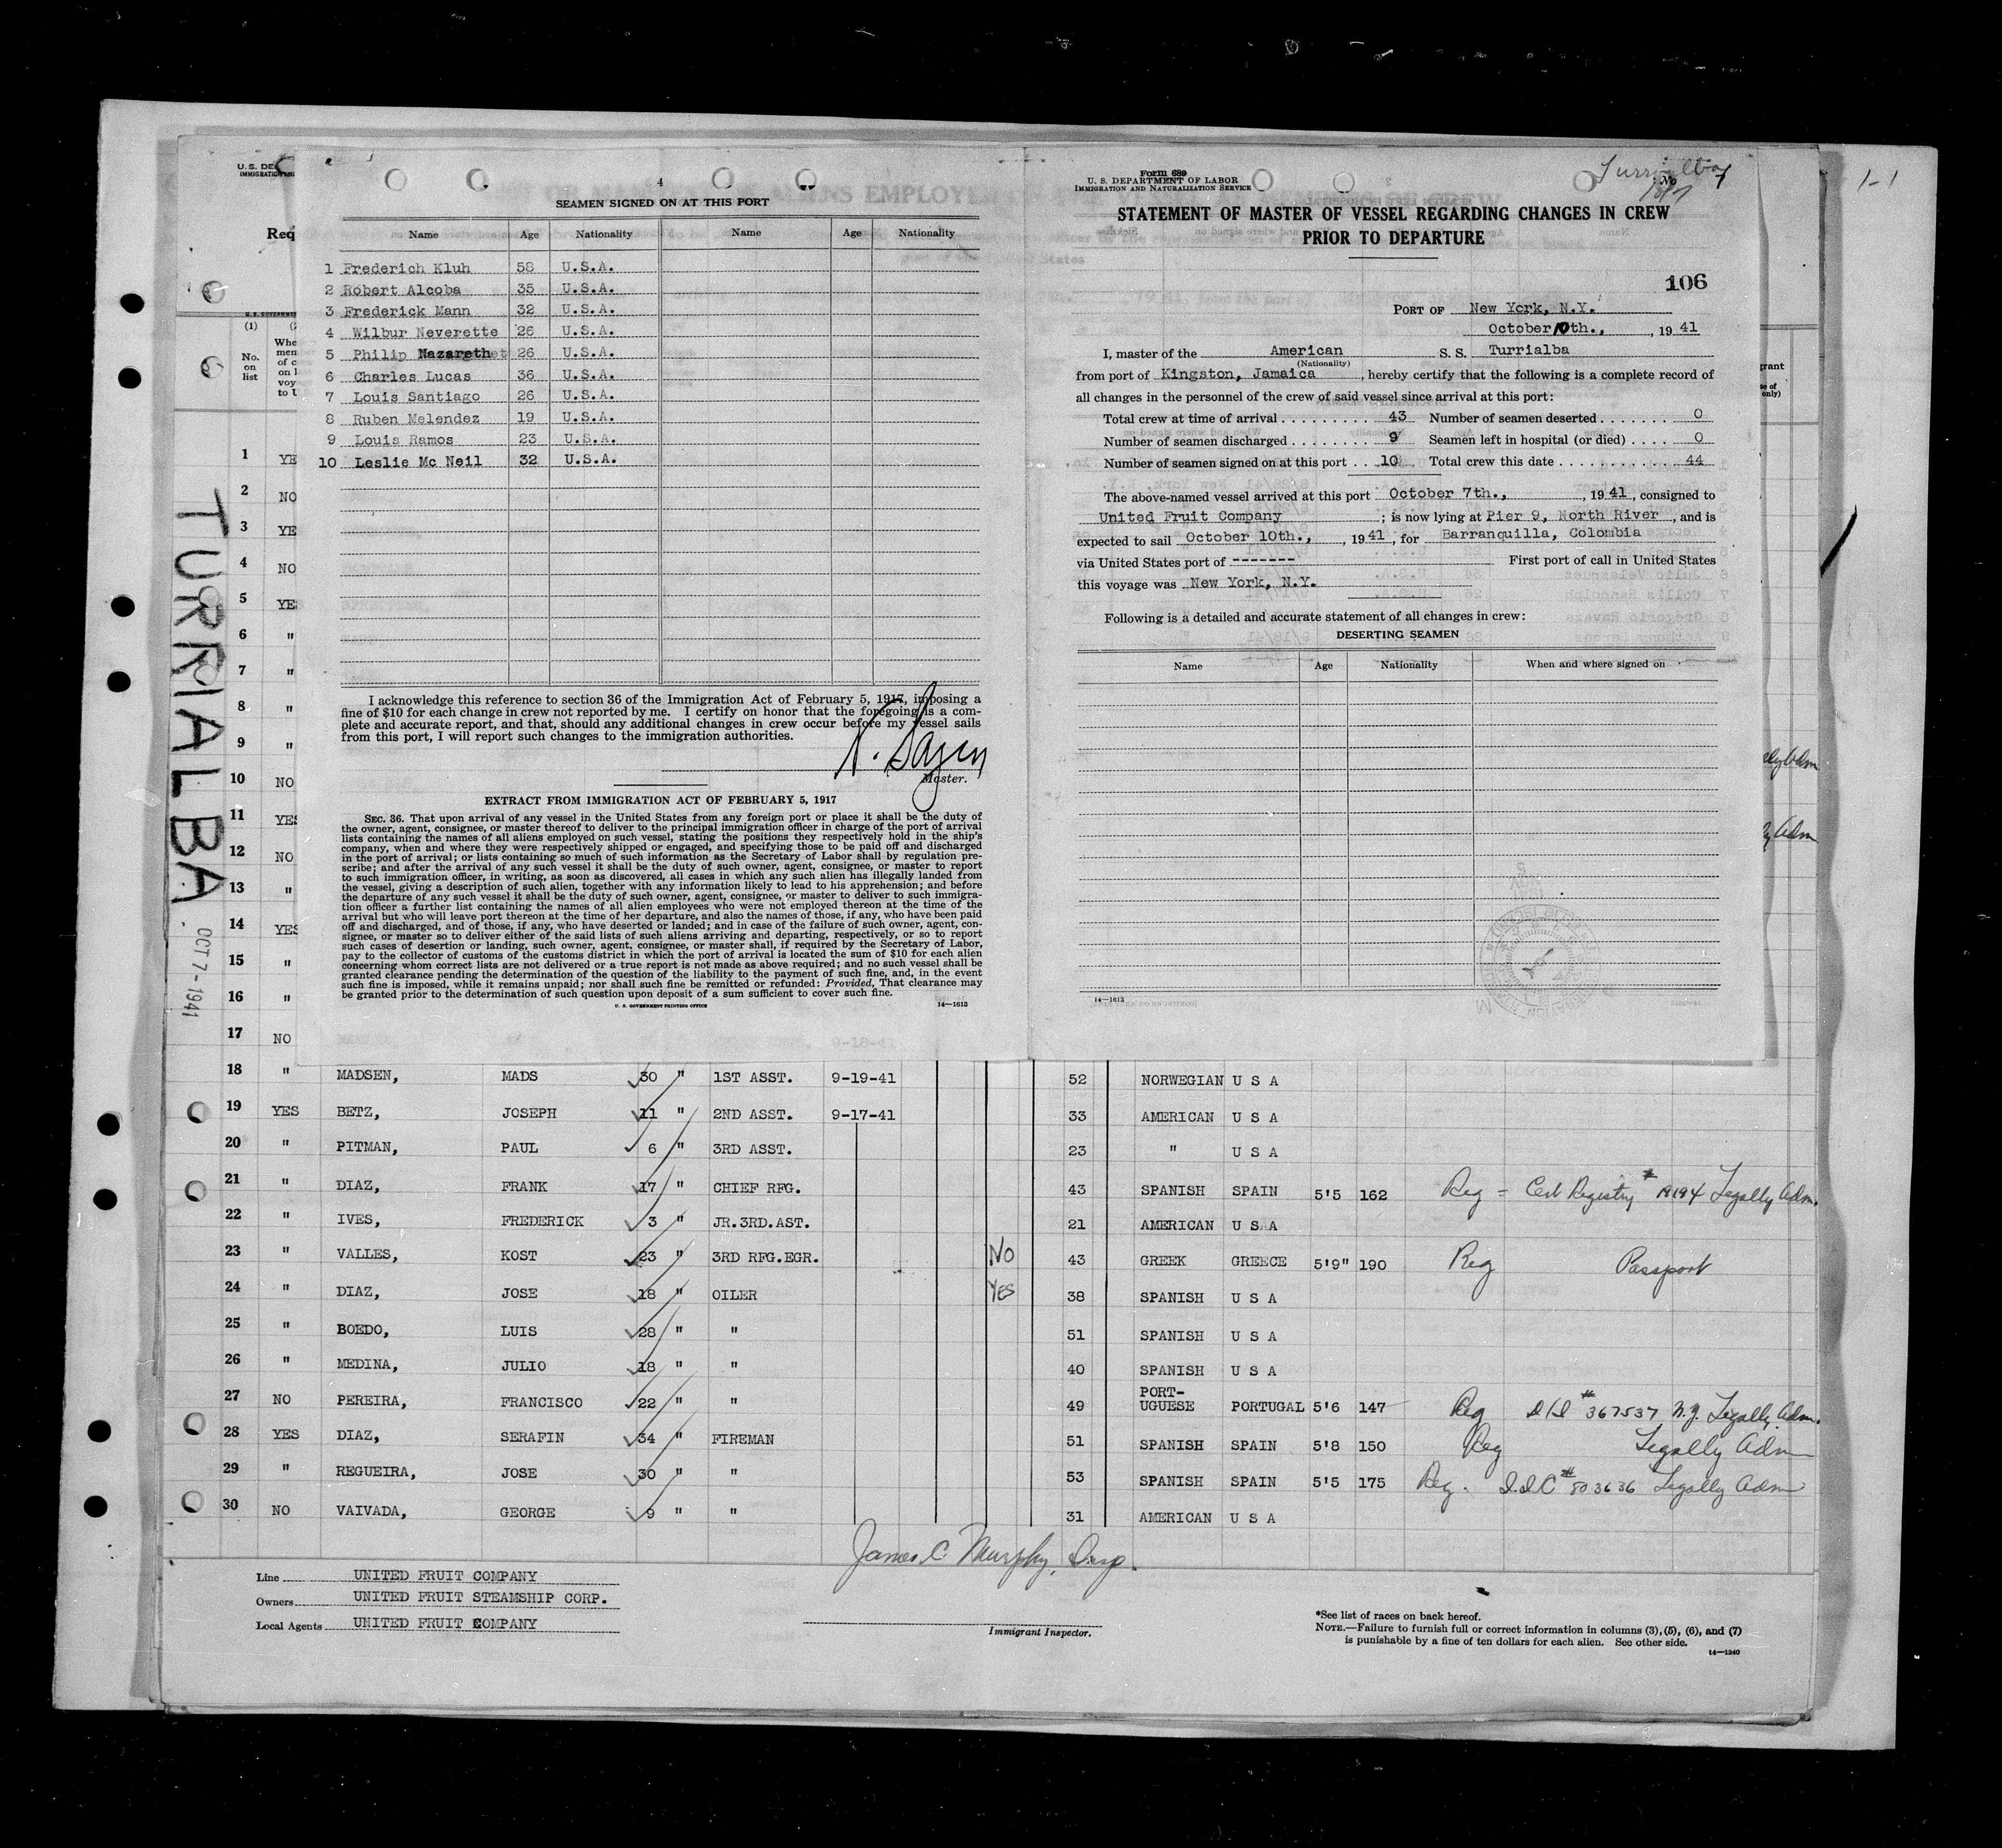 U.S. DE
IMMIGRATION
Req
4
SEAMEN SIGNED ON AT THIS PORT
Name Age Nationality Name Age Nationality
1 Frederich Kluh 58 U.S.A.
2 Robert Alcoba 35 U.S.A.
3 Frederick Mann 32 U.S.A.
4 Wilbur Neverette 26 U.S.A.
5 Philip Nazareth 26 U.S.A.
6 Charles Lucas 36 U.S.A.
7 Louis Santiago 26 U.S.A.
8 Ruben Melendez 19 U.S.A.
9 Louis Ramos 23 U.S.A.
10 Leslie Mc Neil 32 U.S.A.
I acknowledge this reference to section 36 of the Immigration Act of February 5, 1917, imposing a
fine of $10 for each change in crew not reported by me. I certify on honor that the foregoing is a com-
plete and accurate report, and that, should any additional changes in crew occur before my vessel sails
from this port, I will report such changes to the immigration authorities.
Master.
EXTRACT FROM IMMIGRATION ACT OF FEBRUARY 5, 1917
SEC. 36. That upon arrival of any vessel in the United States from any foreign port or place it shall be the duty of
the owner, agent, consignee, or master thereof to deliver to the principal immigration officer in charge of the port of arrival
lists containing the names of all aliens employed on such vessel, stating the positions they respectively hold in the ship's
company, when and where they were respectively shipped or engaged, and specifying those to be paid off and discharged
in the port of arrival; or lists containing so much of such information as the Secretary of Labor shall by regulation pre-
scribe; and after the arrival of any such vessel it shall be the duty of such owner, agent, consignee, or master to report
to such immigration officer, in writing, as soon as discovered, all cases in which any such alien has illegally landed from
the vessel, giving a description of such alien, together with any information likely to lead to his apprehension; and before
the departure of any such vessel it shall be the duty of such owner, agent, consignee, or master to deliver to such immigra-
tion officer a further list containing the names of all alien employees who were not employed thereon at the time of the
arrival but who will leave port thereon at the time of her departure, and also the names of those, if any, who have been paid
off and discharged, and of those, if any, who have deserted or landed; and in case of the failure of such owner, agent, con-
signee, or master so to deliver either of the said lists of such aliens arriving and departing, respectively, or so to report
such cases of desertion or landing, such owner, agent, consignee, or master shall, if required by the Secretary of Labor,
pay to the collector of customs of the customs district in which the port of arrival is located the sum of $10 for each alien
concerning whom correct lists are not delivered or a true report is not made as above required; and no such vessel shall be
granted clearance pending the determination of the question of the liability to the payment of such fine, and, in the event
such fine is imposed, while it remains unpaid; nor shall such fine be remitted or refunded: Provided, That clearance may
be granted prior to the determination of such question upon deposit of a sum sufficient to cover such fine.
U. S. GOVERNMENT PRINTING OFFICE 14—1613
Form 689
U. S. DEPARTMENT OF LABOR
IMMIGRATION AND NATURALIZATION SERVICE
Turrialba
No 7
STATEMENT OF MASTER OF VESSEL REGARDING CHANGES IN CREW
PRIOR TO DEPARTURE
106
PORT OF New York, N.Y.
October 10th., , 19 41
I, master of the American S. S. Turrialba
(Nationality)
from port of Kingston, Jamaica , hereby certify that the following is a complete record of
all changes in the personnel of the crew of said vessel since arrival at this port:
Total crew at time of arrival . . . . . . . . . 43 Number of seamen deserted . . . . . . . 0
Number of seamen discharged . . . . . . . . 9 Seamen left in hospital (or died) . . . . 0
Number of seamen signed on at this port . . 10 Total crew this date . . . . . . . . . . . . 44
The above-named vessel arrived at this port October 7th., , 19 41 , consigned to
United Fruit Company ; is now lying at Pier 9, North River , and is
expected to sail October 10th., , 19 41 , for Barranquilla, Colombia
via United States port of ------- First port of call in United States
this voyage was New York, N.Y.
Following is a detailed and accurate statement of all changes in crew:
DESERTING SEAMEN
Name Age Nationality When and where signed on
14—1613
TURRIALBA OCT 7 - 1941
(1)
No.
on
list
1 YE
2 NO
3 YE
4 NO
5 YES
6 "
7 "
8 "
9 "
10 NO
11 YES
12 NO
13 "
14 YES
15 "
16 "
17 NO
18 " MADSEN, MADS 30 " 1ST ASST. 9-19-41 52 NORWEGIAN U S A
19 YES BETZ, JOSEPH 11 " 2ND ASST. 9-17-41 33 AMERICAN U S A
20 " PITMAN, PAUL 6 " 3RD ASST. 23 " U S A
21 " DIAZ, FRANK 17 " CHIEF RFG. 43 SPANISH SPAIN 5'5 162 Reg = Cert Registry # A194 Legally Adm.
22 " IVES, FREDERICK 3 " JR.3RD.AST. 21 AMERICAN U S A
23 " VALLES, KOST 23 " 3RD RFG.EGR. NO 43 GREEK GREECE 5'9" 190 Reg Passport
24 " DIAZ, JOSE 18 " OILER YES 38 SPANISH U S A
25 " BOEDO, LUIS 28 " " 51 SPANISH U S A
26 " MEDINA, JULIO 18 " " 40 SPANISH U S A
27 NO PEREIRA, FRANCISCO 22 " " 49 PORT-UGUESE PORTUGAL 5'6 147 Reg # 367537 N.Y. Legally Adm.
28 YES DIAZ, SERAFIN 34 " FIREMAN 51 SPANISH SPAIN 5'8 150 Reg Legally Adm
29 " REGUEIRA, JOSE 30 " " 53 SPANISH SPAIN 5'5 175 Reg. I.I.C # 803636 Legally Adm
30 NO VAIVADA, GEORGE 9 " " 31 AMERICAN U S A
James C. Murphy, Insp.
Line UNITED FRUIT COMPANY
Owners UNITED FRUIT STEAMSHIP CORP.
Local Agents UNITED FRUIT COMPANY
Immigrant Inspector.
*See list of races on back hereof.
NOTE.—Failure to furnish full or correct information in columns (3), (5), (6), and (7)
is punishable by a fine of ten dollars for each alien. See other side.
14—1240